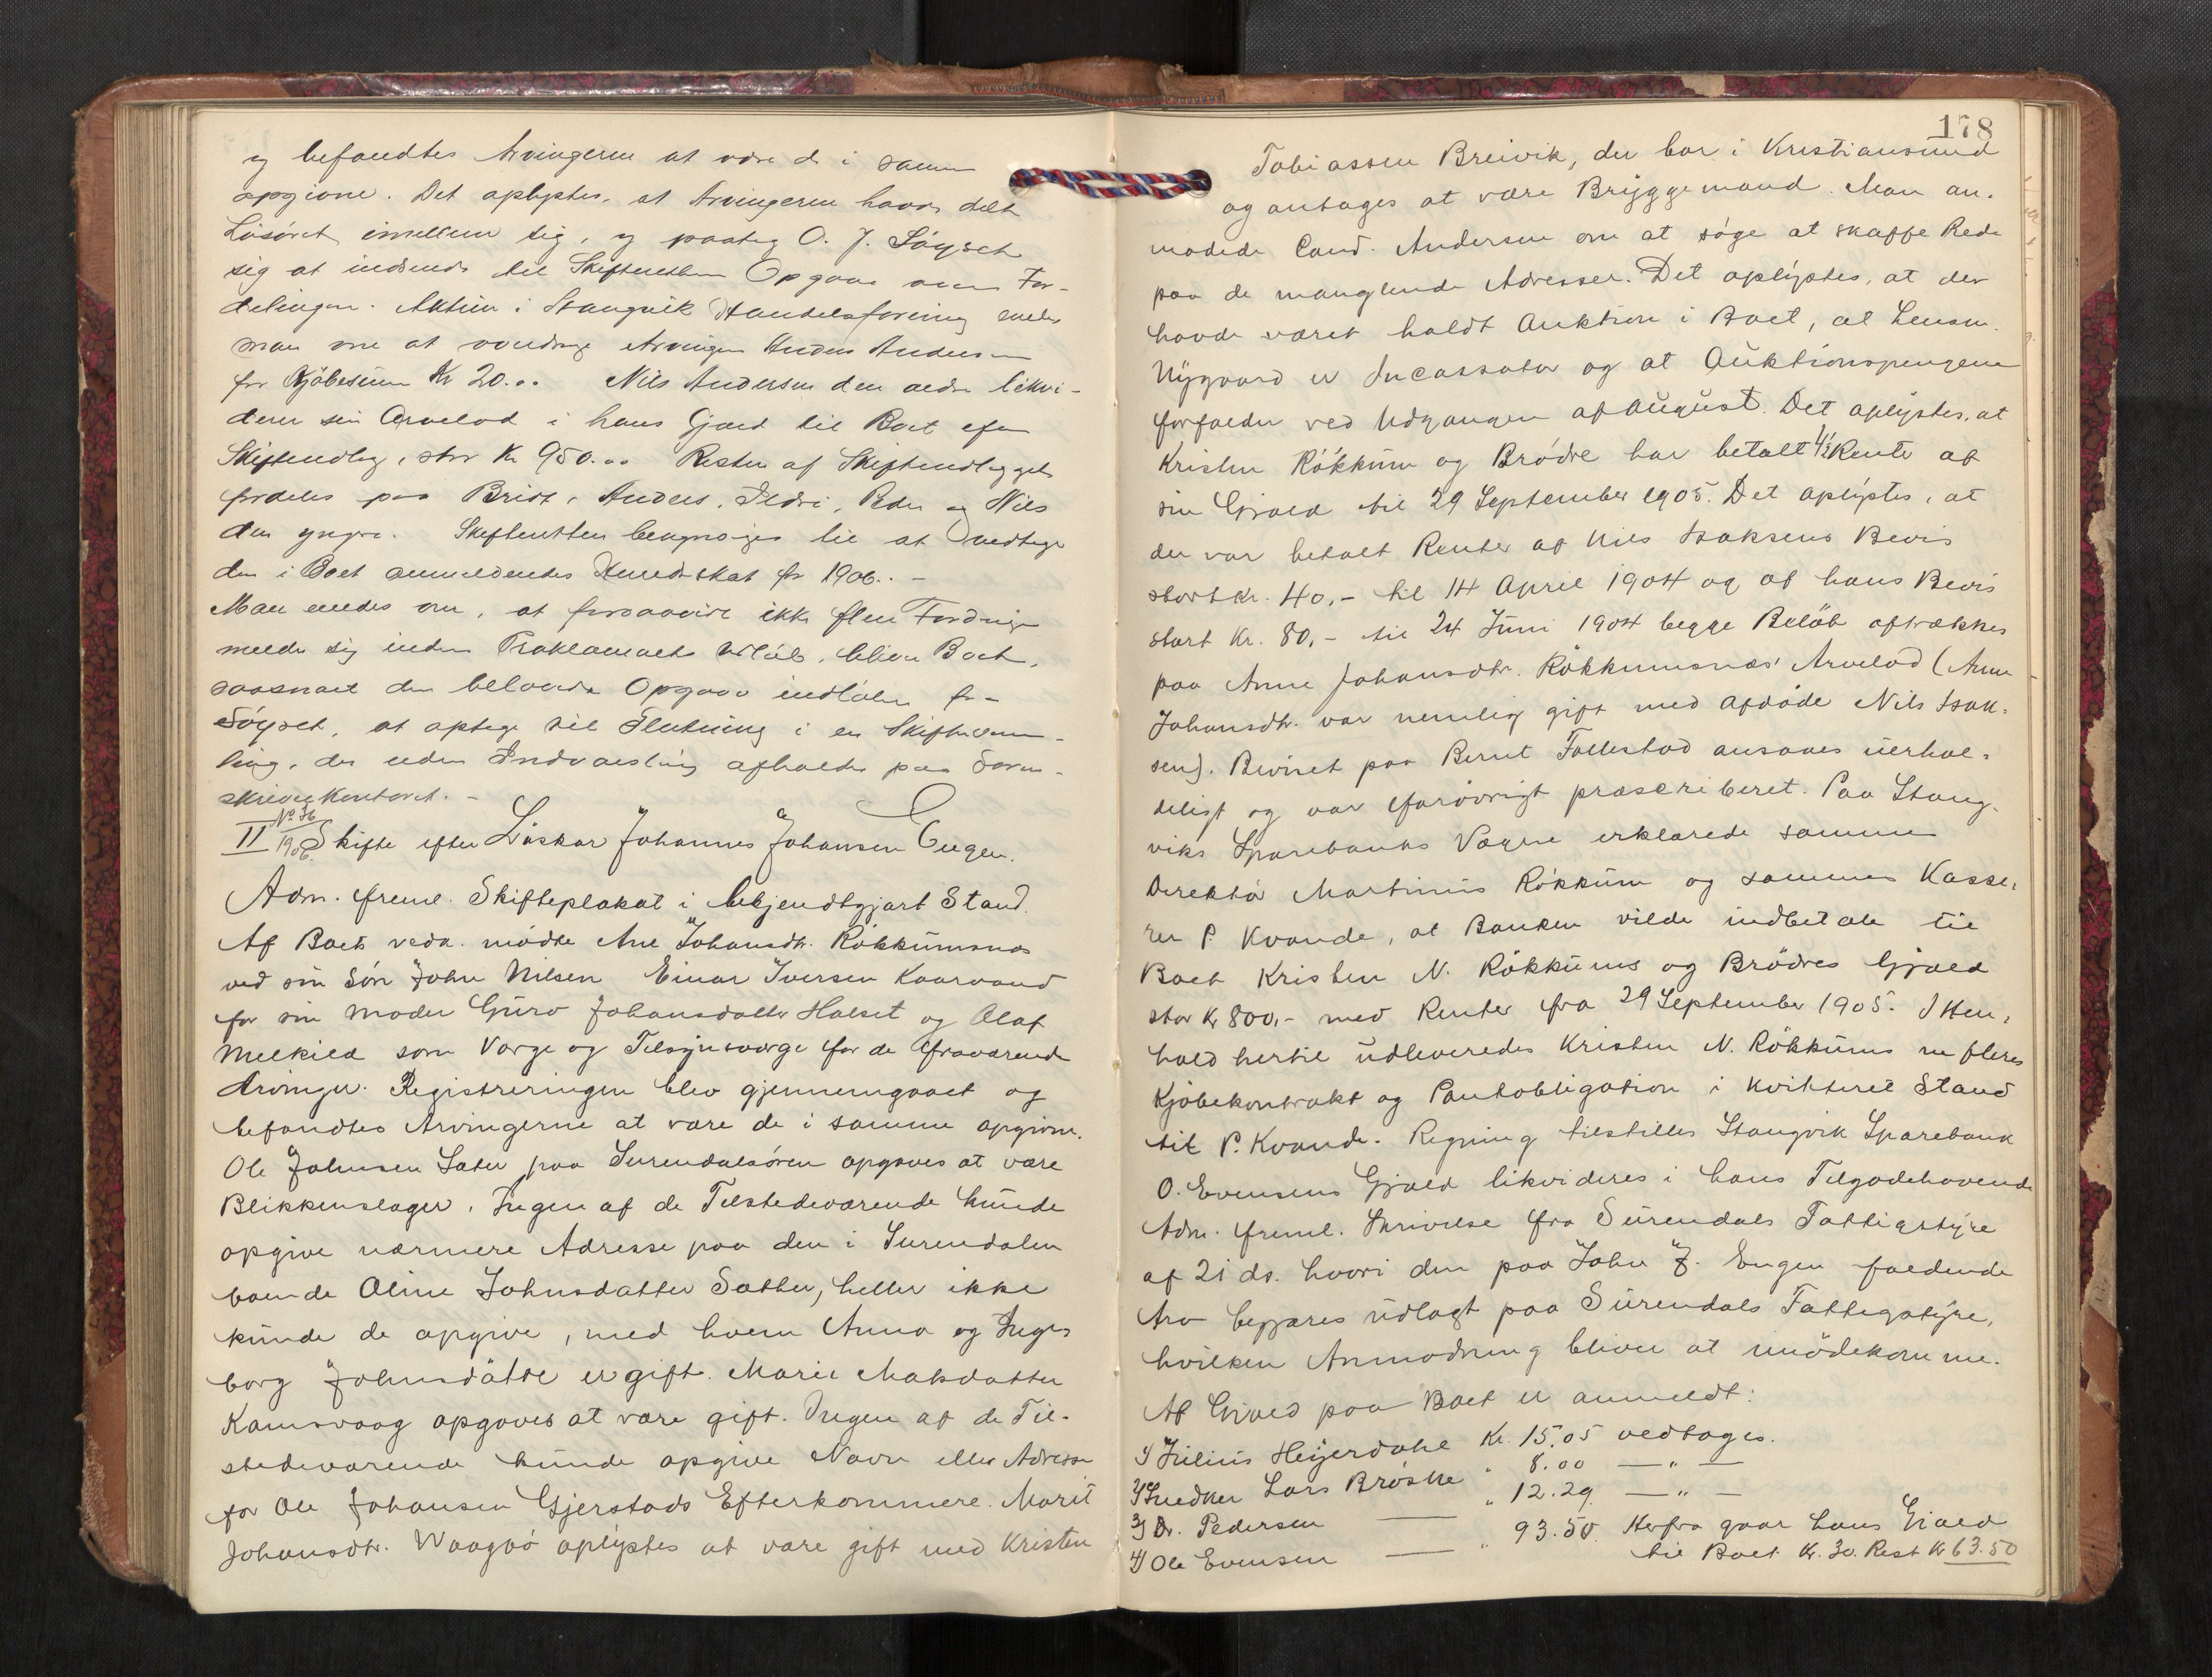 og befandtes Arvingerne at være de i samme
opgivne. Det oplystes, at Arvingerne havde delt
Løsøret imellem sig, og paatog O. J. Søyset
sig at indsende til Skifteretten Opgave over For-
delingen. Aktien i Stangvik Handelsforening enedes
man om at overdrage Arvingen Anders Andersen
for Kjøbesum Kr 20.00 Nils Andersen den ældre likvi-
derer sin Arvelod i hans Gjæld til Boet efter
Skifteudlæg, stor Kr 950.00 Resten af Skifteudlægget
fordeles paa Brit, Anders, Ildri, Peder og Nils
den yngre. Skifteretten bemyndiges til at vedtage
den i Boet anmeldendes Herredsskat for 1906. -
Man enedes om, at forsaavidt ikke flere Fordringer
melder sig inden Proklamaets Udløb, bliver Boet,
saasnart den belovede Opgave indløber fra
Søyset, at optage til Slutning i en Skiftesam-
ling, der uden Indvarsling afholdes paa Soren-
skriverkontoret. -
No 36
II 1906. Skifte efter Løskar Johannes Johansen Engen.
Adm. freml. Skifteplakat i bekjendtgjort Stand.
Af Boets vedk. mødte Ane Johansdtr. Røkkumsnæs
ved sin Søn John Nilsen Einar Iversen Kaarvand
for sin Moder Guro Johansdatter Halset og Olaf
Melkild som Værge og Tilsynsværge for de fraværende
Arvinger. Registreringen blev gjennemgaaet og
befandtes Arvingerne at være de i samme opgivne.
Ole Johnsen Sæter paa Surendalsøren opgaves at være
Blikkenslager. Ingen af de Tilstedeværende kunde
opgive nærmere Adresse paa den i Surendalen
boende Oline Johnsdatter Sæther, heller ikke
kunde de opgive, med hvem Anna og Inge-
borg Johnsdøtre er gift. Marie Maksdatter
Kamsvaag opgaves at være gift. Ingen af de Til-
stedeværende kunde opgive Navn eller Adresse
for Ole Johansen Gjerstads Efterkommere. Marit
Johansdtr. Waagbø oplystes at være gift med Kristen
178
Tobiassen Breivik, der bor i Kristiansund
og antages at være Bryggemand. Man an-
modede Cand. Andersen om at søge at skaffe Rede
paa de manglende Adresser. Det oplystes, at der
havde været holdt Auktion i Boet, at Lensm.
Nygaard er Incassator og at Auktionspengene
forfalder ved Udgangen af August. Det oplystes, at
Kristen Røkkum og Brødre har betalt 4½ Rente af
sin Gjæld til 29 September 1905. Det oplystes, at
der var betalt Renter af Nils Isaksens Bevis
stort kr. 40,- til 14 April 1904 og af hans Bevis
stort Kr. 80,- til 24 Juni 1904 begge Beløb aftrækkes
paa Anne Johansdtr. Røkkumsnæs' Arvelod (Anne
Johansdtr. var nemlig gift med afdøde Nils Isak-
sen). Beviset paa Bernt Follestad ansaaes uerhol-
deligt og var forøvrigt præscriberet. Paa Stang-
viks Sparebanks Vegne erklærede samme
Direktør Martinus Røkkum og sammes Kasse-
rer P. Kvande, at Banken vilde indbetale til
Boet Kristen N. Røkkums og Brødres Gjæld
stor Kr 800,- med Renter fra 29 September 1905. I Hen-
hold hertil udleveredes Kristen N. Røkkums m fleres
Kjøbekontrakt og Pantobligation i kvitteret Stand
til P. Kvande. Regning tilstilles Stangvik Sparebank
O. Evensens Gjæld likvideres i hans Tilgodehavende
Adm. freml. Skrivelse fra Surendals Fattigstyre
af 21 ds. hvori den paa John J. Engen faldende
Arv begjæres udlagt paa Surendals Fattigstyre,
hvilken Anmodning bliver at imødekomme.
Af Gjæld paa Boet er anmeldt:
1) Julius Heyerdahl Kr. 15.05 vedtages.
2) Snedker Lars Brøske " 8.00 — " —
3) Dr. Pedersen — " 12.29 — " —
4) Ole Evensen — " 93.50 Herfra gaar hans Gjæld
til Boet Kr. 30. Rest Kr 63.50